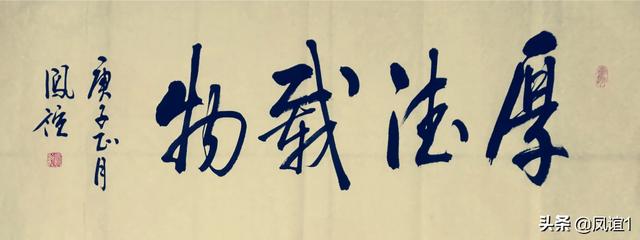 厚德载物
庚子正月
凤谊
头条 @凤谊1